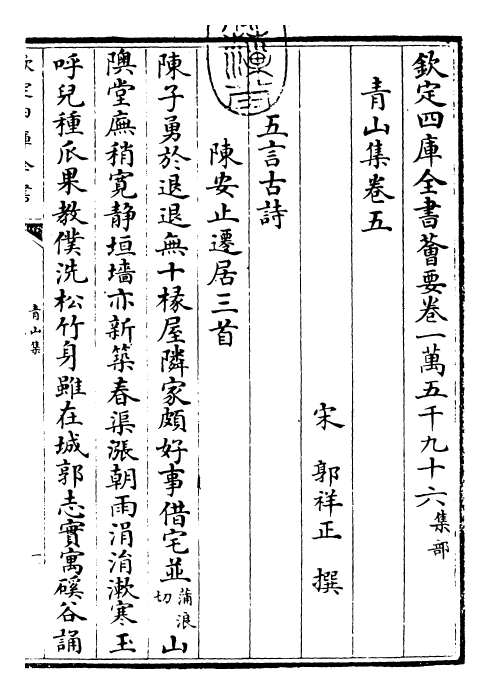 欽定四庫全書薈要卷一萬五千九十六集部
青山集卷五
宋郭祥正撰
五言古詩
陳安止遷居三首
陳子勇於退退無十椽屋隣家頗好事借宅並蒲浪切山
隩堂廡稍寛静垣墻亦新築春渠漲朝雨涓涓漱寒玉
呼兒種瓜果教僕洗松竹身雖在城郭志實寓磎谷誦
欽定四庫全書
青山集
一